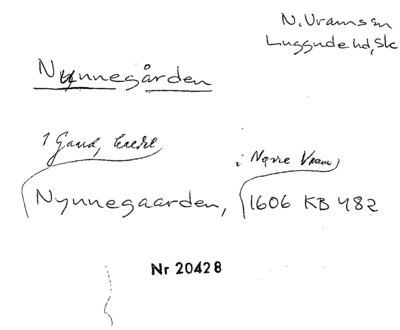 N. Vramsen
Luggude hd, Sk
Nynnegården
1 Gaard, kreti
i Nørre Vram,
Nynnegaarden, 1606 KB 482
Nr 20428